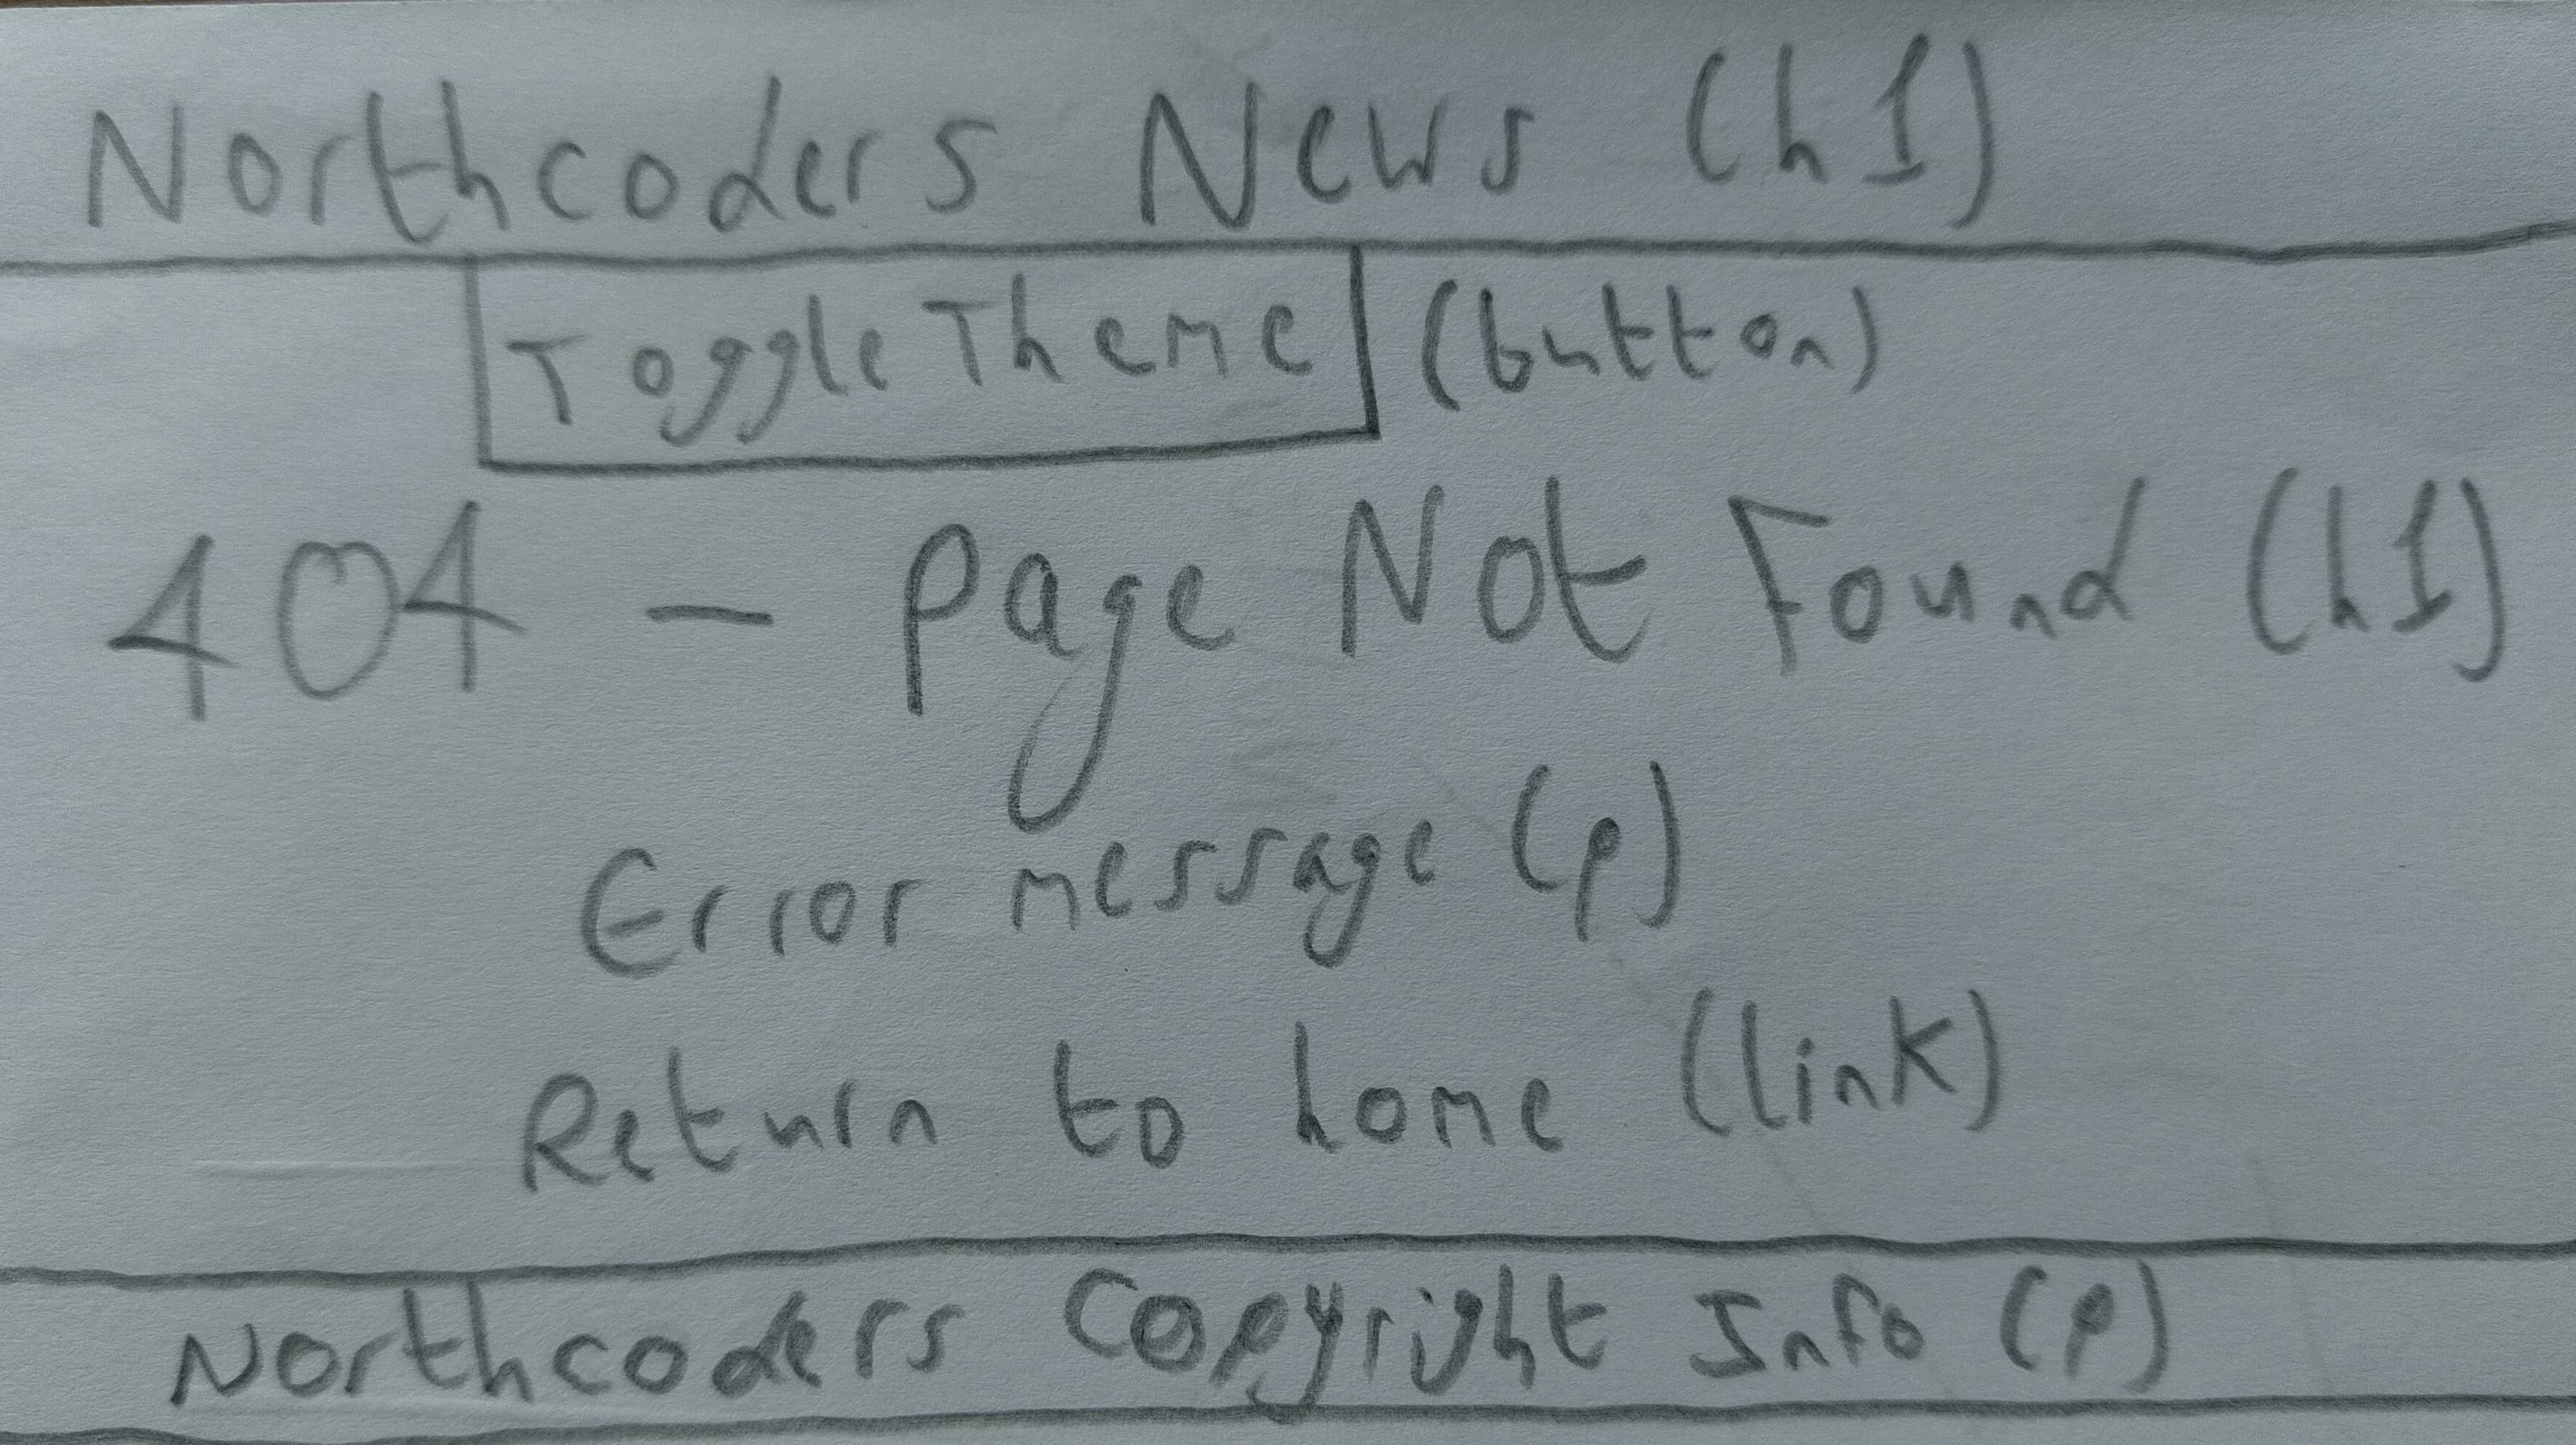 Northcoders News (h1)
Toggle Theme (button)
404 - Page Not Found (h1)
Error message (p)
Return to home (link)
Northcoders Copyright Info (p)